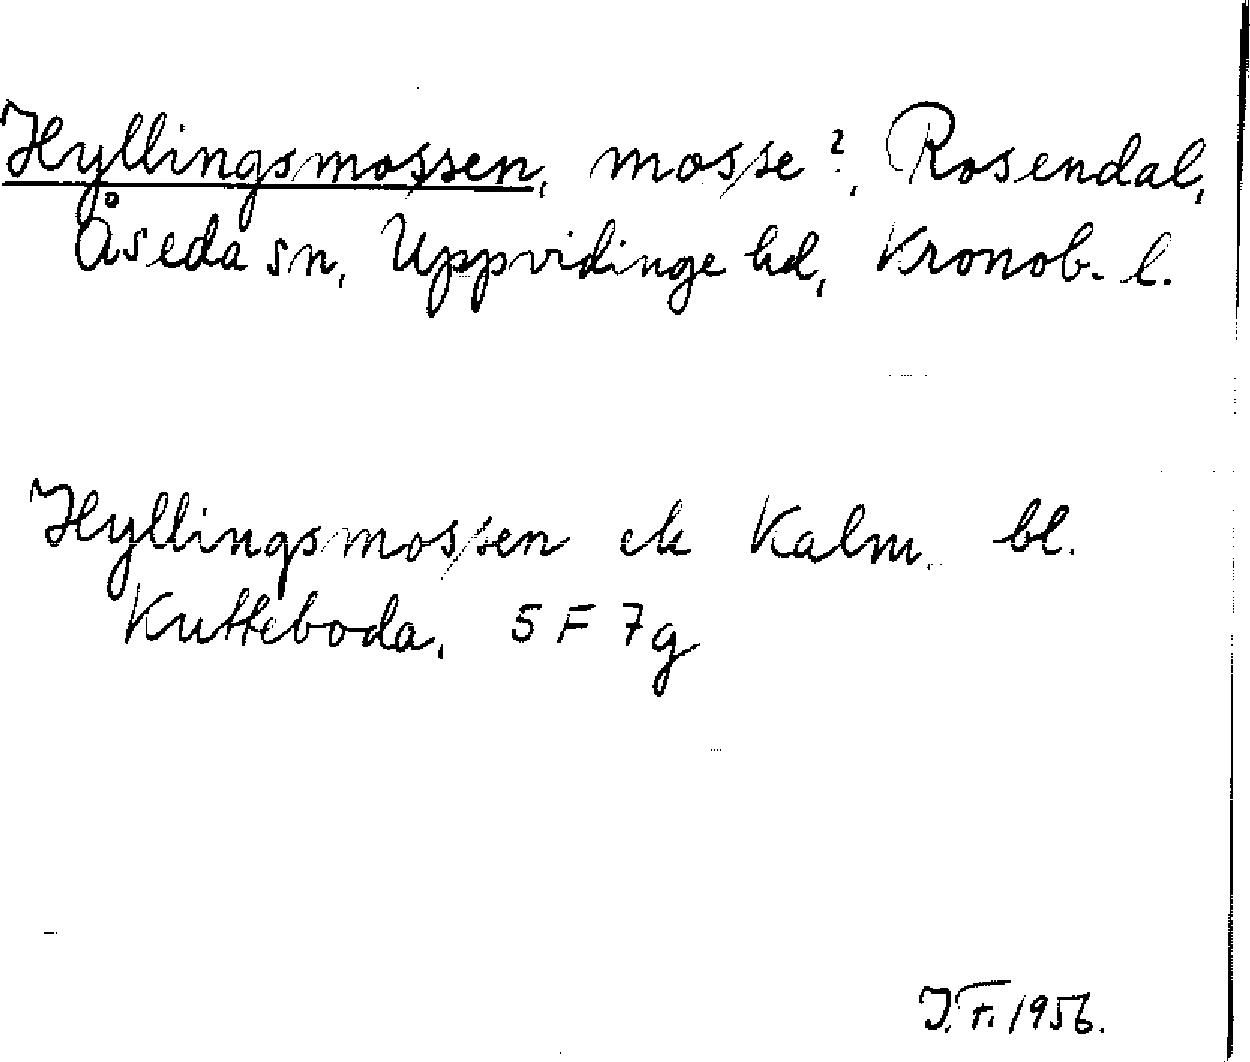 Hyllingsmossen, mosse?, Rosendal,
Åseda sn, Uppvidinge hd, Kronob. l.
Hyllingsmossen ek Kalm. bl.
Kutteboda. 5 F 7g
J.F. 1956.